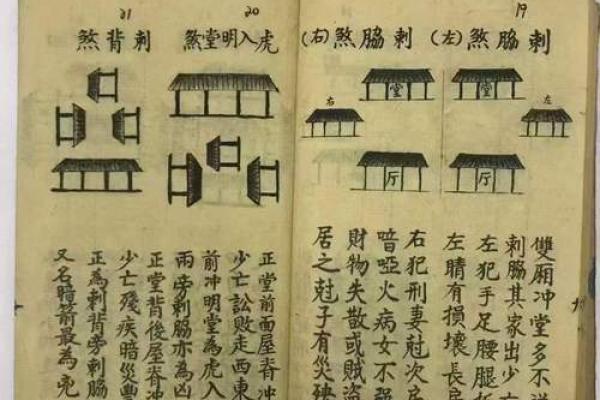 19
刺脇煞(左)
堂
左
厅
刺脇煞(右)
堂
右
厅
雙厢冲堂多不
刺脇其家出少亡
左犯手足腰腿
左睛有損壞長房
右犯刑妻尅次房
喑啞火病女不强
財物失散或賊盜
居之尅子有災殃
20
虎入明堂煞
21
刺背煞
正堂前面屋脊冲
少亡訟敗走西東
前冲明堂為虎入
兩旁刺脇亦為凶
正堂背後屋脊冲
少亡殘疾暗災豐
正為刺背旁刺脇
又名暗箭最為兇